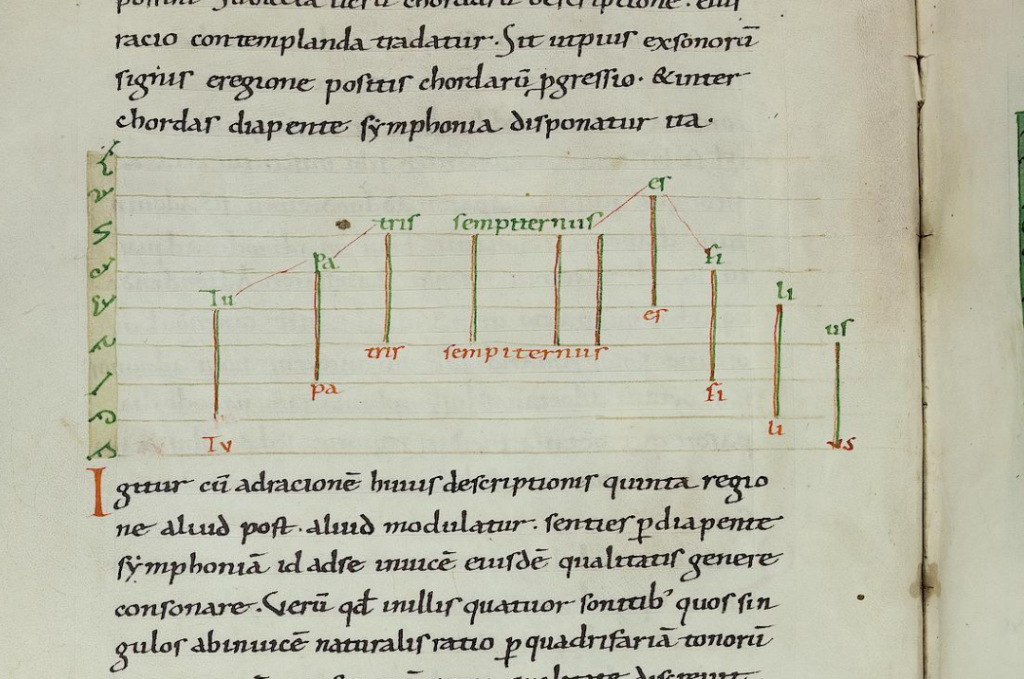 possint subiecta ueru chordarū descriptione. eius
racio contemplanda tradatur. Sit utpius exsonorū
signis eregione positis chordarū ꝓgressio. & inter
chordas diapente symphonia disponatur ita.
es
tris sempiternus
pa fi
Tu li
es
us
tris sempiternus
pa fi
li
Tv us
Igitur cū adracionē huius descriptionis quinta regio
ne aliud post. aliud modulatur. senties ꝑdiapente
symphoniā id adse inuicē eiusdē qualitatis genere
consonare. Verū qd̄ inillis quatuor sonitib' quos sin
gulos abinuicē naturalis ratio ꝑ quadrifariā tonorū